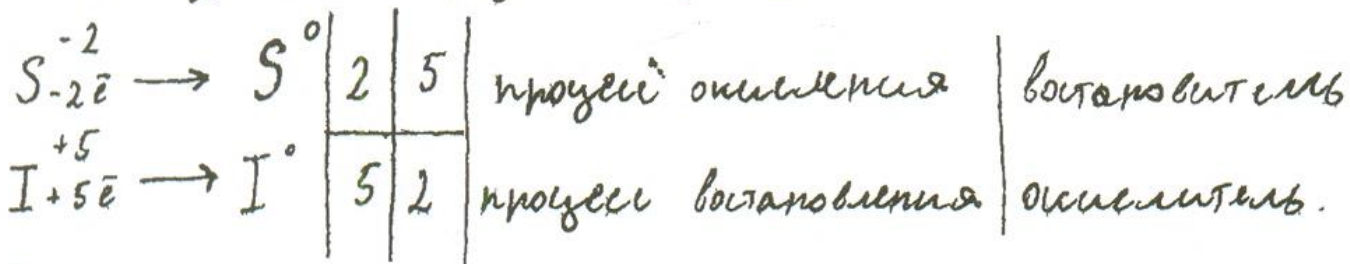 S⁻² -2ē → S⁰ | 2 | 5 | процесс окисления | востановитель
I⁺⁵ +5ē → I⁰ | 5 | 2 | процесс востановления | окислитель.